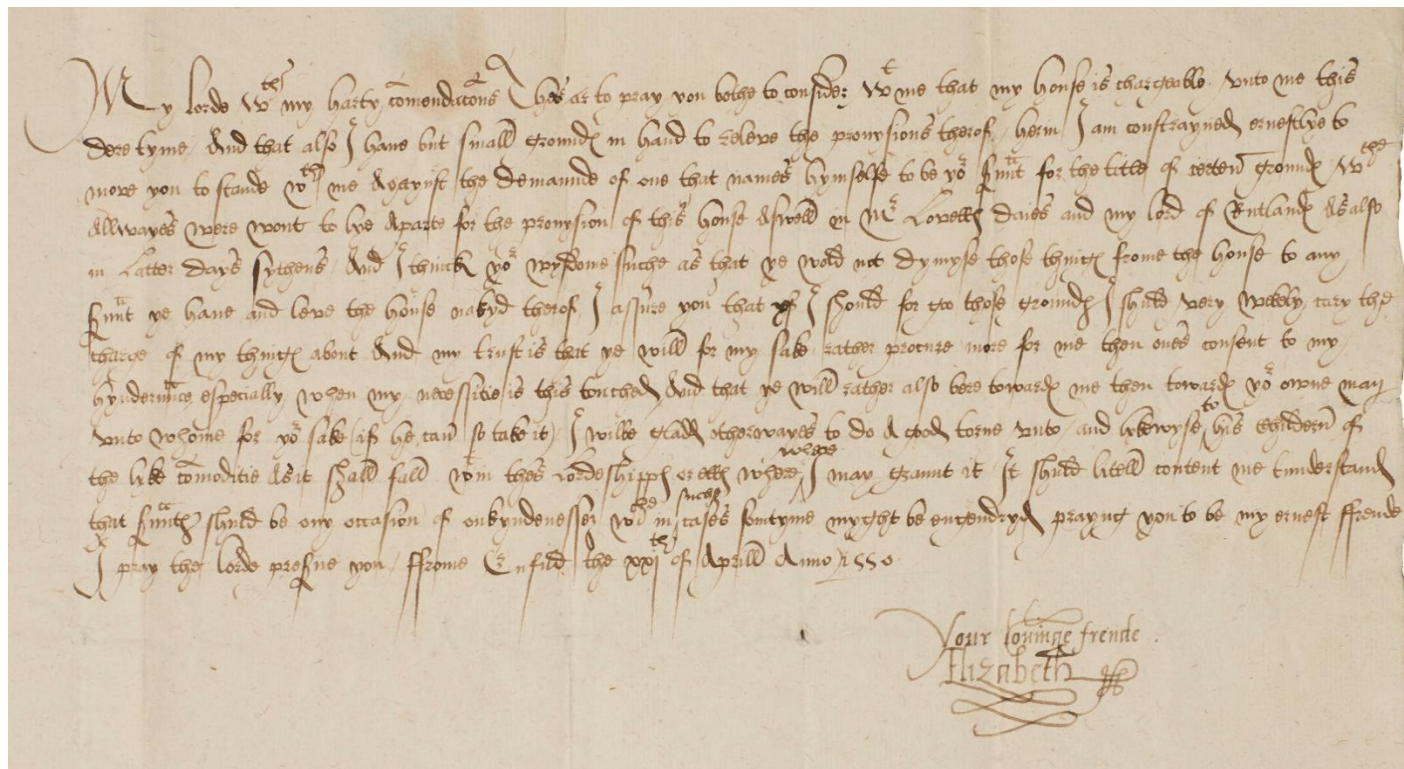 My lorde wth my harty comendacons Thes ar to pray you bothe to consider wt me that my house is chargeable unto me this
dere tyme / And that also I have but small groundes in hand to releve the provysions therof / herin I am constrayned ernestlye to
move you to stande wth me Agaynst the demaunde of one that names hymselfe to be yor srunt for the title of certen groundes wche
Allwayes were wont to lye Aparte for the provysion of this house Aswell in Mr Lovelles daies and my lord of Rutlandes As also
in Latter days sythens / And I thinck yor wysdome suche as that ye wold not dymyse those thinges frome the house to any
srunt ye have and leve the house nakyd therof I assure you that yf I should for goe those groundes I shuld very wekely cary the
charge of my thinges about And my trust is that ye will for my sake rather procure more for me then ones consent to my
hynderunce especially when my necessitie is this touched And that ye will rather also bere towardes me then towardes yor owne man
unto whome for yor sake (if he can so take it) I wilbe gladd otherwayes to do A good torne unto / and lykewyse to his childern of
the lyke comoditie As it shall fall wtin thes Lordeshippes or elles where where I may graunt it It shuld litell content me tunderstand
that srunts shuld be ony occasion of onkyndenesses wche in suche cases somtyme myght be engendryd prayng you to be my ernest ffrende
I pray the lorde preserve you / ffrome Enfild the xxjth of Aprill Anno 1550
Your lovinge frende
Elizabeth